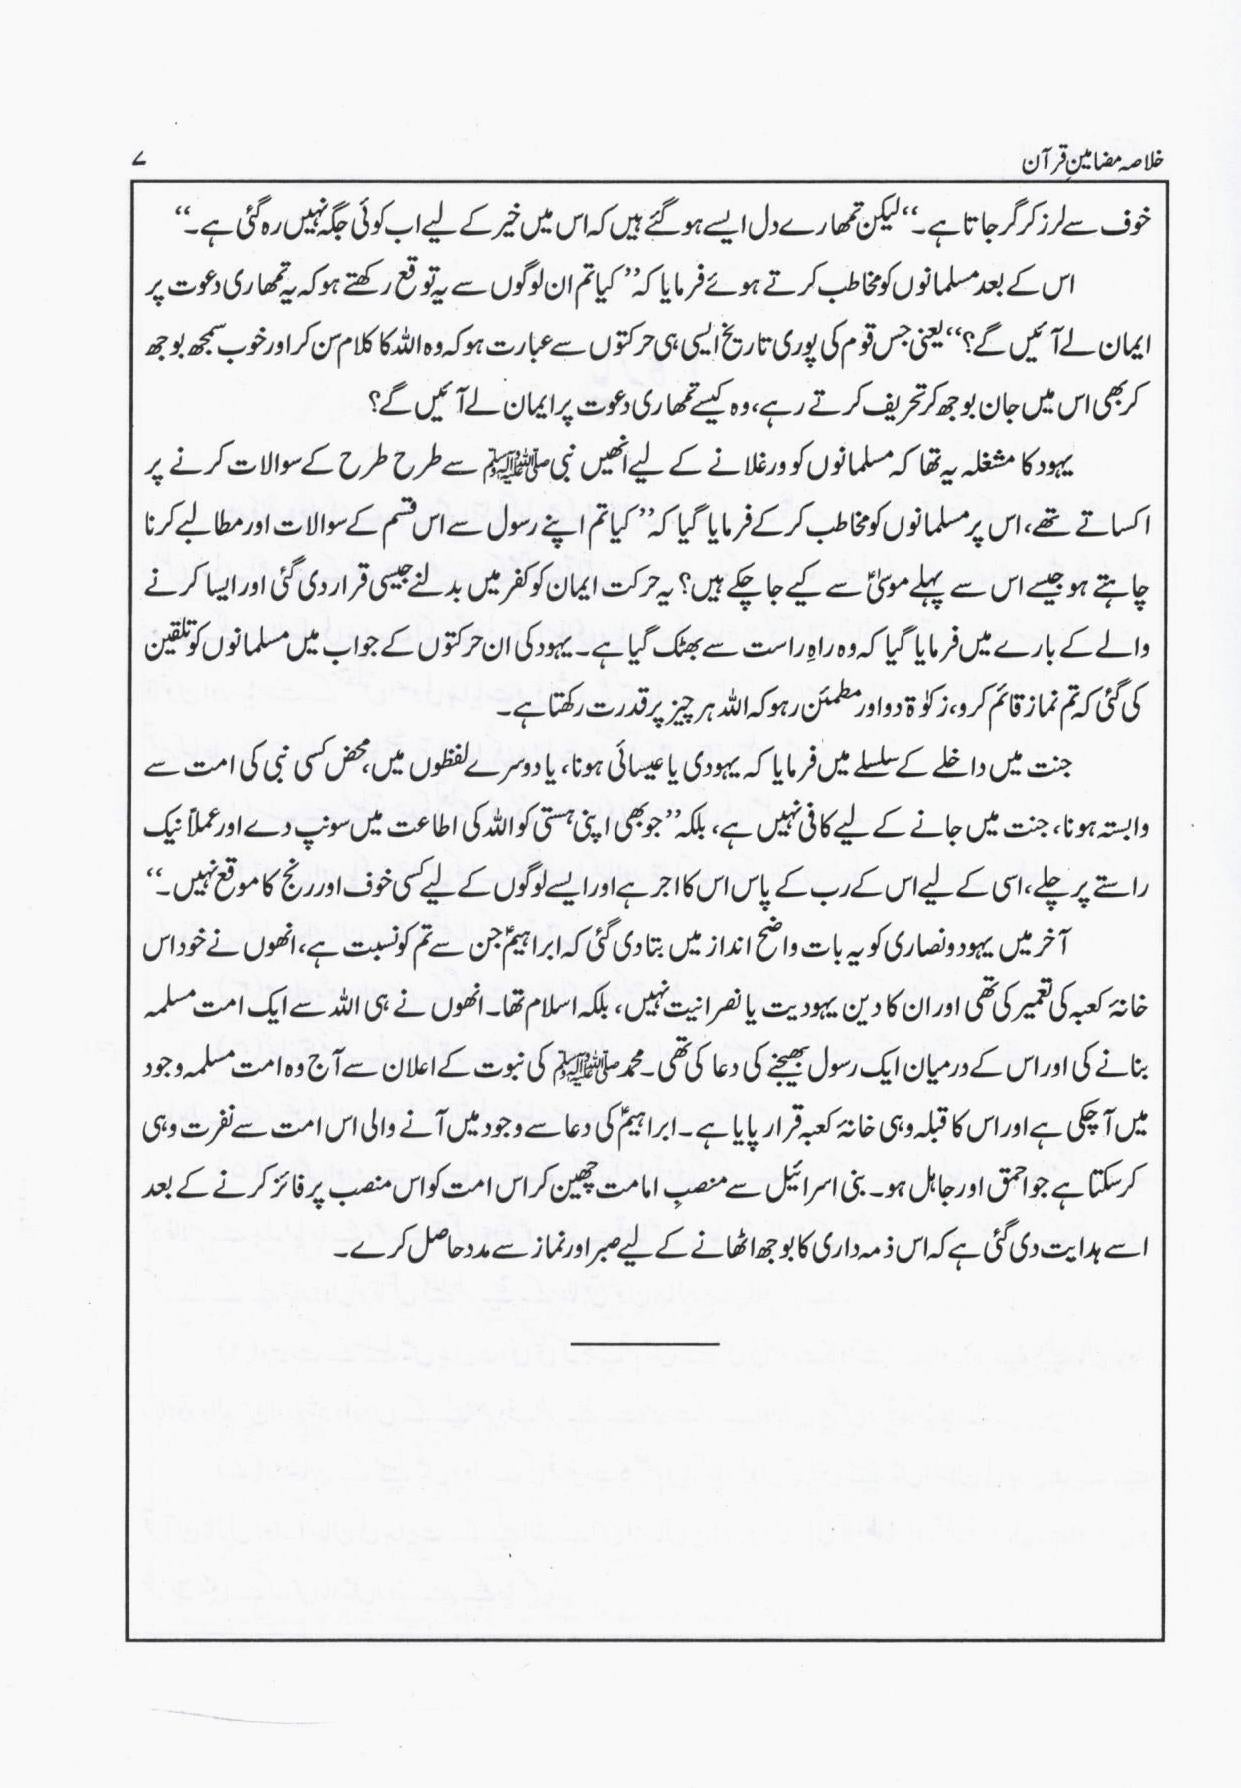 خلاصہ مضامینِ قرآن
۷
خوف سے لرز کر گر جاتا ہے۔‘‘ لیکن تمھارے دل ایسے ہو گئے ہیں کہ اس میں خیر کے لیے اب کوئی جگہ نہیں رہ گئی ہے۔‘‘
اس کے بعد مسلمانوں کو مخاطب کرتے ہوئے فرمایا کہ ’’کیا تم ان لوگوں سے یہ توقع رکھتے ہو کہ یہ تمھاری دعوت پر
ایمان لے آئیں گے؟‘‘ یعنی جس قوم کی پوری تاریخ ایسی ہی حرکتوں سے عبارت ہو کہ وہ اللہ کا کلام سن کر اور خوب سمجھ بوجھ
کر بھی اس میں جان بوجھ کر تحریف کرتے رہے، وہ کیسے تمھاری دعوت پر ایمان لے آئیں گے؟
یہود کا مشغلہ یہ تھا کہ مسلمانوں کو ورغلانے کے لیے انھیں نبی ﷺ سے طرح طرح کے سوالات کرنے پر
اکساتے تھے، اس پر مسلمانوں کو مخاطب کر کے فرمایا گیا کہ ’’کیا تم اپنے رسول سے اس قسم کے سوالات اور مطالبے کرنا
چاہتے ہو جیسے اس سے پہلے موسیٰؑ سے کیے جا چکے ہیں؟ یہ حرکت ایمان کو کفر میں بدلنے جیسی قرار دی گئی اور ایسا کرنے
والے کے بارے میں فرمایا گیا کہ وہ راہِ راست سے بھٹک گیا ہے۔ یہود کی ان حرکتوں کے جواب میں مسلمانوں کو تلقین
کی گئی کہ تم نماز قائم کرو، زکوٰۃ دو اور مطمئن رہو کہ اللہ ہر چیز پر قدرت رکھتا ہے۔
جنت میں داخلے کے سلسلے میں فرمایا کہ یہودی یا عیسائی ہونا، یا دوسرے لفظوں میں، محض کسی نبی کی امت سے
وابستہ ہونا، جنت میں جانے کے لیے کافی نہیں ہے، بلکہ ’’جو بھی اپنی ہستی کو اللہ کی اطاعت میں سونپ دے اور عملاً نیک
راستے پر چلے، اسی کے لیے اس کے رب کے پاس اس کا اجر ہے اور ایسے لوگوں کے لیے کسی خوف اور رنج کا موقع نہیں۔‘‘
آخر میں یہود و نصاری کو یہ بات واضح انداز میں بتا دی گئی کہ ابراہیمؑ جن سے تم کو نسبت ہے، انھوں نے خود اس
خانۂ کعبہ کی تعمیر کی تھی اور ان کا دین یہودیت یا نصرانیت نہیں، بلکہ اسلام تھا۔ انھوں نے ہی اللہ سے ایک امت مسلمہ
بنانے کی اور اس کے درمیان ایک رسول بھیجنے کی دعا کی تھی۔ محمد ﷺ کی نبوت کے اعلان سے آج وہ امت مسلمہ وجود
میں آ چکی ہے اور اس کا قبلہ وہی خانۂ کعبہ قرار پایا ہے۔ ابراہیمؑ کی دعا سے وجود میں آنے والی اس امت سے نفرت وہی
کر سکتا ہے جو احمق اور جاہل ہو۔ بنی اسرائیل سے منصبِ امامت چھین کر اس امت کو اس منصب پر فائز کرنے کے بعد
اسے ہدایت دی گئی ہے کہ اس ذمہ داری کا بوجھ اٹھانے کے لیے صبر اور نماز سے مدد حاصل کرے۔